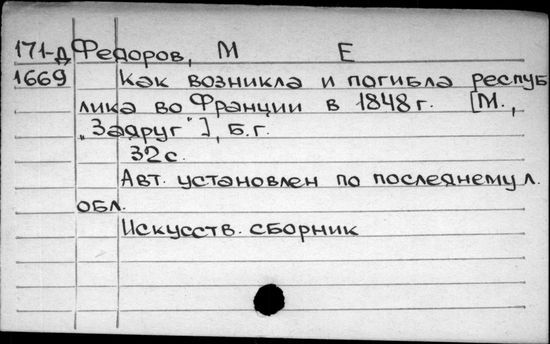 171-д Федоров, М Е
1669 Как возникла и погибла респуб
лика во Франции в 1848 г. [М.,
„Задруг"], б.г.
32 с.
Авт. установлен по последнему л.
обл.
Искусств. сборник